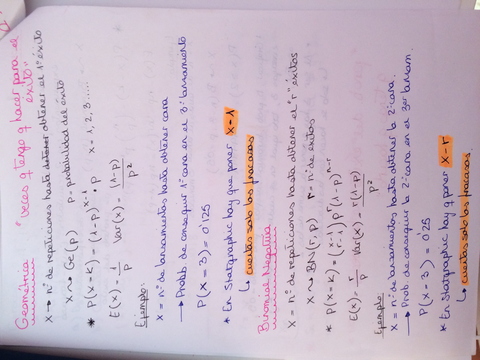 Geométrica "veces q tengo q hacer para el éxito"
X → nº de repeticiones hasta obtener el 1º éxito
X ~> Ge(p) p = probabilidad del éxito
* P(X=K) = (1-p)^(x-1) · p x = 1, 2, 3.....
E(x) = 1/p Var(x) = (1-p)/p²
Ejemplo:
X = nº de lanzamientos hasta obtener cara
→ Prob de conseguir 1ª cara en el 3er lanzamiento
P(X=3) = 0'125
* En Statgraphic hay que poner X-1
↳ cuentas solo los fracasos
Binomial Negativa
X = nº de repeticiones hasta obtener el "r" éxitos
X ~> BN(r, p) r = nº de éxitos
* P(X=K) = (x-1 r-1) p^r (1-p)^(n-r)
E(x) = r/p Var(x) = r(1-p)/p²
Ejemplo:
X = nº de lanzamientos hasta obtener la 2ª cara
→ Prob. de conseguir la 2ª cara en el 3er lanzam.
P(X=3) = 0'25
* En Statgraphic hay q poner X-r
↳ cuentas solo los fracasos